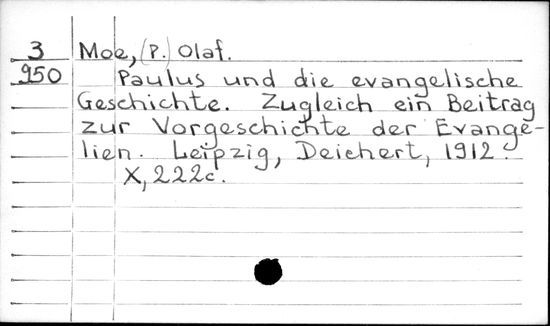 3 Moe, (P.) Olaf.
950 Paulus und die evangelische
Geschichte. Zugleich ein Beitrag
zur Vorgeschichte der Evange-
lien. Leipzig, Deichert, 1912.
X, 222c.